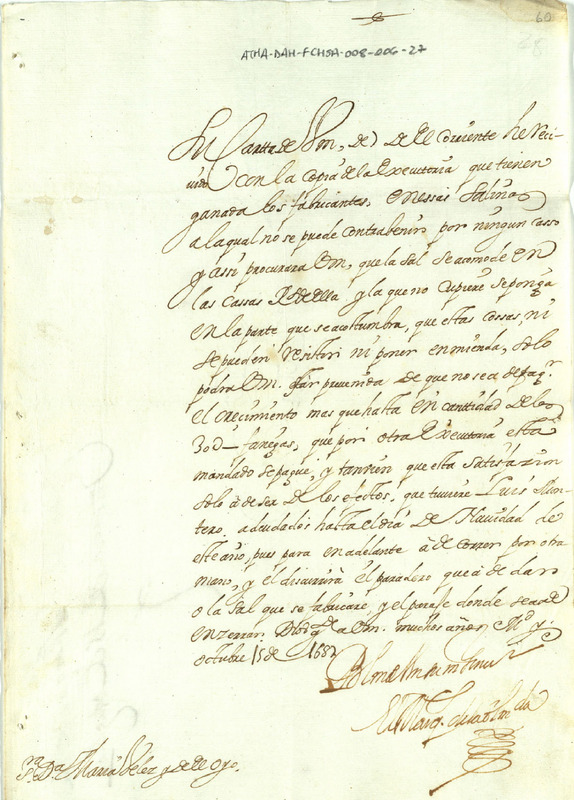 60
28
ATHA-DAH-FCHSA-008-006-27
La Cartta de Vm, de 7 del Corriente he reci
uido con la copia de la Executoria que tienen
ganada los fabricantes, en essas Salinas
a la qual no se puede contrabenir por ningun casso
y assi procurara Vm, que la sal se acomode en
las cassas de ella y la que no cupiere se ponga
en la parte que se acostumbra, que estas cossas, ni
se pueden ni poner enmienda, solo
podra Vm. estar preuenida de que no se a de pagar
el crecimiento mas que hasta en cantidad de los
30D fanegas, que por otra Executoria esta
mandado se pague, y tanuien que esta satisfazion
solo a de ser de los efectos, que tuuiere Luis Mon
tero. adeudados hasta el dia de Nauidad de
este año, pues para en adelante a de correr por otra
mano, y el discurrira el paradero que a de dar
a la sal que se fabricare, y el paraje donde se a de
enzerrar. Dios gde a Vm. muchos años Md y
octubre 15 de 1682
Sra Da Maria Velez